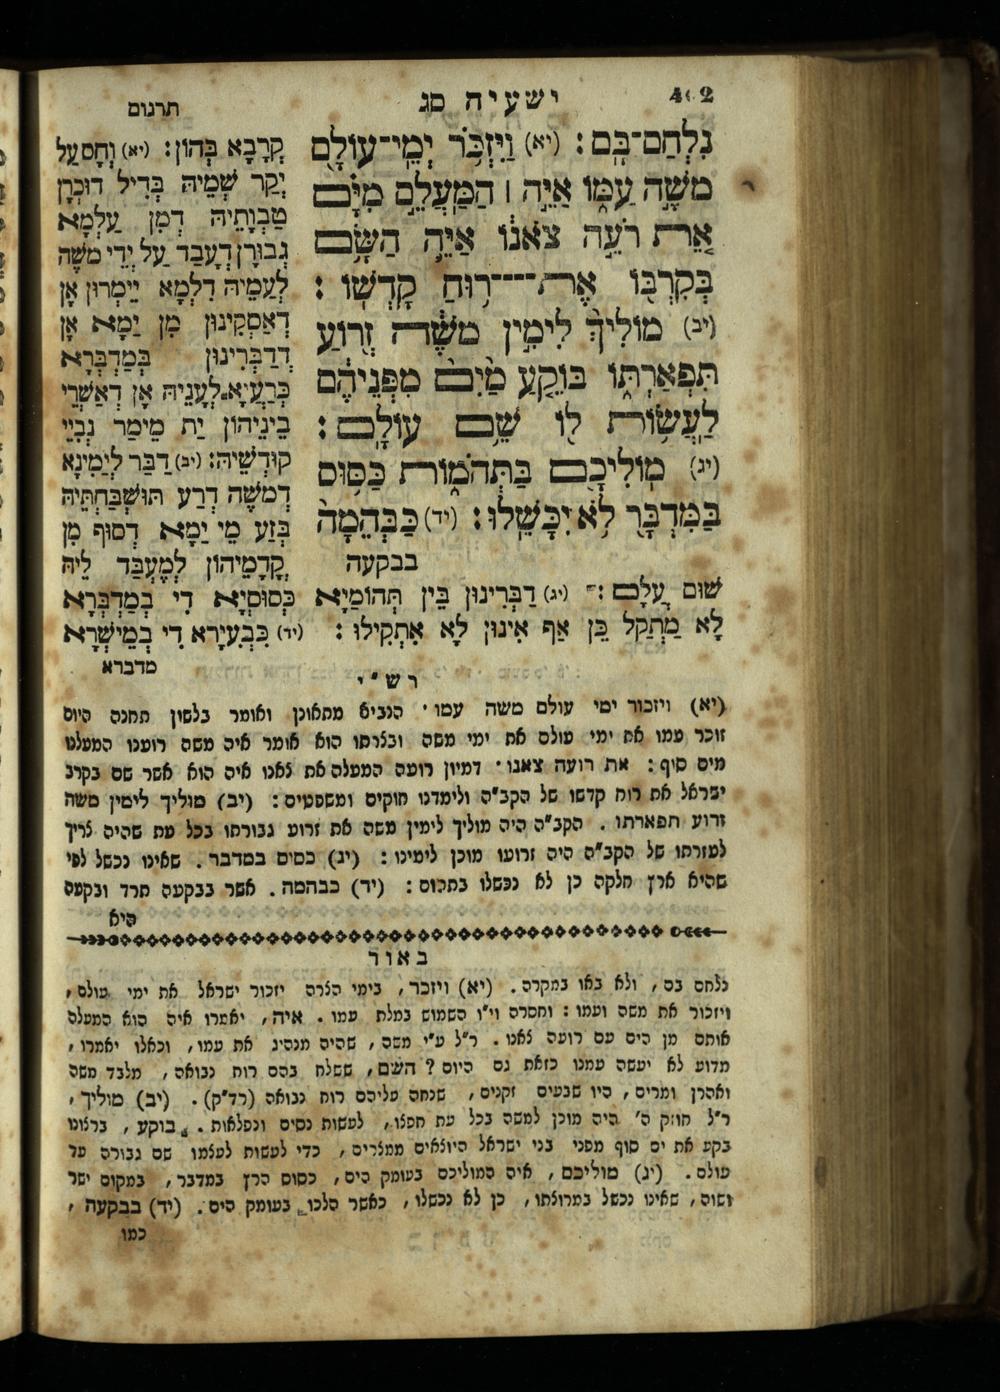 402
ישעיה סג
תרגום
נִלְחַם־בָּם׃ (יא) וַיִּזְכֹּר יְמֵי־עוֹלָם
מֹשֶׁה עַמּוֹ אַיֵּה ׀ הַמַּעֲלֵם מִיָּם
אֵת רֹעֵה צֹאנוֹ אַיֵּה הַשָּׂם
בְּקִרְבּוֹ אֶת־רוּחַ קָדְשׁוֹ׃
(יב) מוֹלִיךְ לִימִין מֹשֶׁה זְרוֹעַ
תִּפְאַרְתּוֹ בּוֹקֵעַ מַיִם מִפְּנֵיהֶם
לַעֲשׂוֹת לוֹ שֵׁם עוֹלָם׃
(יג) מוֹלִיכָם בַּתְּהֹמוֹת כַּסּוּס
בַּמִּדְבָּר לֹא יִכָּשֵׁלוּ׃ (יד) כַּבְּהֵמָה
בבקעה
קְרָבָא בְּהוֹן׃ (יא) וְחָס עַל
יְקַר שְׁמֵיהּ בְּדִיל דּוּכְרָן
טַבְוָתֵיהּ דְמִן עַלְמָא
גְבוּרָן דְעָבַד עַל יְדֵי מֹשֶׁה
לְעַמֵיהּ דִלְמָא יֵימְרוּן אָן
דְאַסְקִינוּן מִן יַמָא אָן
דְדַבְּרִינוּן בְּמַדְבְּרָא
כְּרַעֲיָא לְעָנֵיהּ אָן דְאַשְׁרֵי
בֵינֵיהוֹן יַת מֵימַר נְבִיֵי
קוּדְשֵׁיהּ׃ (יב) דַבַּר לְיַמִינָא
דְמֹשֶׁה דְרַע תּוּשְׁבַּחְתֵּיהּ
בְּזַע מֵי יַמָא דְסוּף מִן
קֳדָמֵיהוֹן לְמֶעְבַּד לֵיהּ
שׁוּם עָלַם׃ (יג) דַבְּרִינוּן בֵּין תְּהוֹמַיָא כְּסוּסְיָא דִי בְמַדְבְּרָא
לָא מַתְקַל כֵּן אַף אִינוּן לָא אִתְקִילוּ׃ (יד) כִּבְעִירָא דִי בְמֵישְׁרָא
מדברא
רש"י
(יא) ויזכור ימי עולם משה עמו . הנביא מתאונן ואומר בלשון תחנה היום
זוכר עמו את ימי עולם את ימי משה ובצרתו הוא אומר איה משה רוענו המעלנו
מים סוף : את רועה צאנו . דמיון רועה המעלה את צאנו איה הוא אשר שם בקרב
ישראל את רוח קדשו של הקב"ה ולימדנו חוקים ומשפטים : (יב) מוליך לימין משה
זרוע תפארתו . הקב"ה היה מוליך לימין משה את זרוע גבורתו בכל עת שהיה צריך
לעזרתו של הקב"ה היה זרועו מוכן לימינו : (יג) כסוס במדבר . שאינו נכשל לפי
שהיא ארץ חלקה כן לא נכשלו בתהום : (יד) כבהמה . אשר בבקעה תרד ובקעה
היא
באור
נלחם בם , ולא באו במקרה . (יא) ויזכר , בימי הצרה יזכור ישראל את ימי עולם ,
ויזכור את משה ועמו : וחסרה וי"ו השמוש במלת עמו . איה , יאמרו איה הוא המעלה
אותם מן הים עם רועה צאנו . ר"ל ע"י משה , שהיה מנהיג את עמו , וכאלו יאמרו ,
מדוע לא יעשה עמנו כזאת גם היום ? השם , ששלח בהם רוח נבואה , מלבד משה
ואהרן ומרים , היו שבעים זקנים , שנחה עליהם רוח נבואה (רד"ק) . (יב) מוליך ,
ר"ל חוזק ה' היה מוכן למשה בכל עת חפצו , לעשות נסים ונפלאות . בוקע , ברצונו
בקע את ים סוף מפני בני ישראל היוצאים ממצרים , כדי לעשות לעצמו שם גבורה עד
עולם . (יג) מוליכם , איה המוליכם בעומק הים , כסוס הרץ במדבר , במקום ישר
ושוה , שאינו נכשל במרוצתו , כן לא נכשלו , כאשר הלכו בעומק הים . (יד) בבקעה ,
כמו